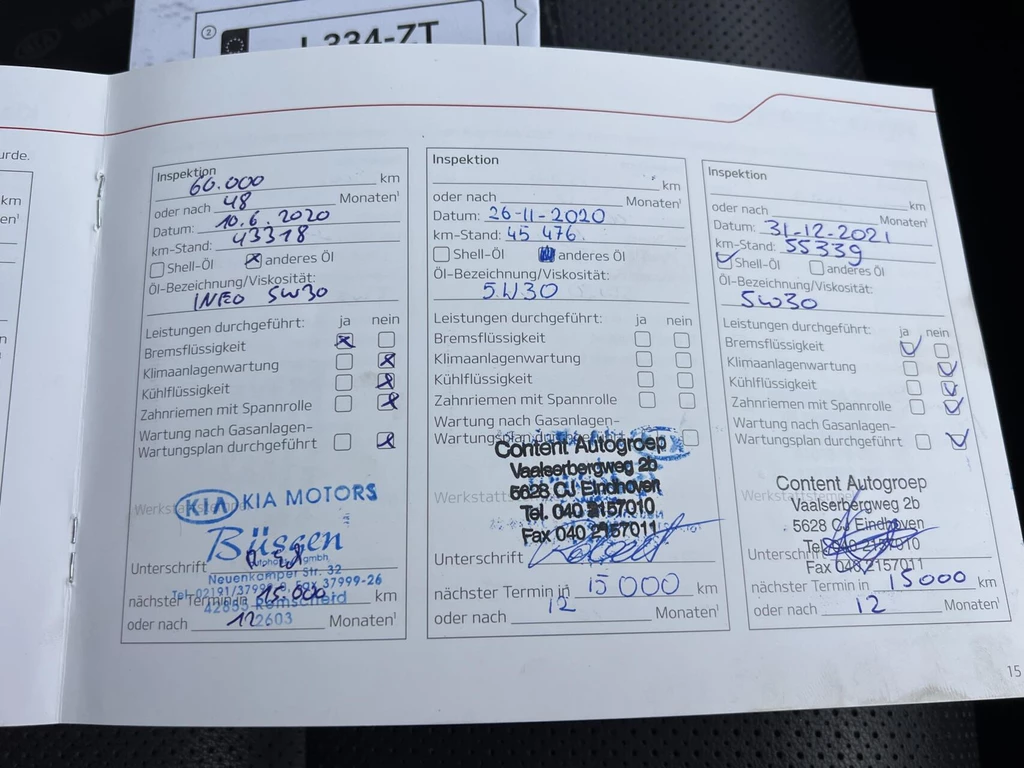 2
L334-ZT
KIA
urde.
km
en¹
km
n
Inspektion
60.000 km
oder nach 48 Monaten¹
Datum: 10.6.2020
km-Stand: 43318
Shell-Öl anderes Öl
Öl-Bezeichnung/Viskosität:
INEO 5W30
Leistungen durchgeführt: ja nein
Bremsflüssigkeit
Klimaanlagenwartung
Kühlflüssigkeit
Zahnriemen mit Spannrolle
Wartung nach Gasanlagen-
Wartungsplan durchgeführt
KIA KIA MOTORS
Büssen
Unterschrift
Neuenkamper Str. 32
Tel. 02191/37999-0, Fax 37999-26
42855 Remscheid
nächster Termin in 15.000 km
oder nach 12 Monaten¹
22603
Inspektion
km
oder nach Monaten¹
Datum: 26-11-2020
km-Stand: 45 476.
Shell-Öl anderes Öl
Öl-Bezeichnung/Viskosität:
5W30
Leistungen durchgeführt: ja nein
Bremsflüssigkeit
Klimaanlagenwartung
Kühlflüssigkeit
Zahnriemen mit Spannrolle
Wartung nach Gasanlagen-
Wartungsplan
Content Autogroep
Vaalserbergweg 2b
5628 CJ Eindhoven
Tel. 040 2157010
Fax 040 2157011
Unterschrift
nächster Termin in 15000 km
oder nach 12 Monaten¹
Inspektion
km
oder nach Monaten¹
Datum: 31-12-2021
km-Stand: 55339
Shell-Öl anderes Öl
Öl-Bezeichnung/Viskosität:
5W30
Leistungen durchgeführt: ja nein
Bremsflüssigkeit
Klimaanlagenwartung
Kühlflüssigkeit
Zahnriemen mit Spannrolle
Wartung nach Gasanlagen-
Wartungsplan durchgeführt
Content Autogroep
Vaalserbergweg 2b
5628 CJ Eindhoven
Tel. 040 2157010
Fax 040 2157011
Unterschrift
nächster Termin in 15000 km
oder nach 12 Monaten¹
15